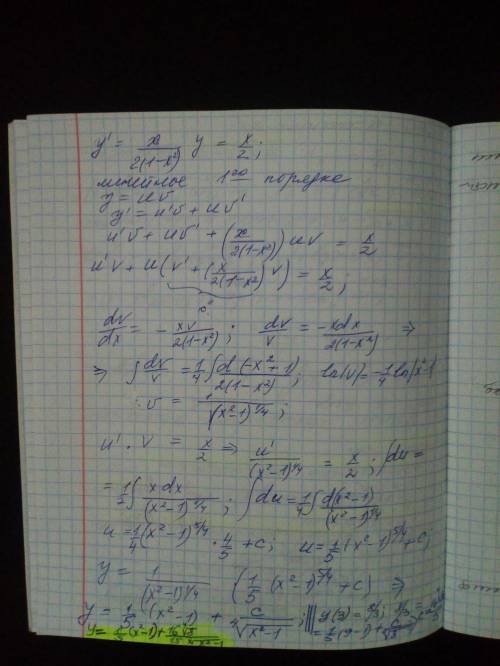 y' = x/(2(1-x²)) y = x/2;
линейное 1го порядка
y = uv
y' = u'v + uv'
u'v + uv' + (x/(2(1-x²))) uv = x/2
u'v + u(v' + (x/(2(1-x²))) v) = x/2;
0"
dv/dx = - xv/(2(1-x²)); dv/v = -xdx/(2(1-x²)) ⇒
⇒ ∫ dv/v = 1/4 ∫ d(-x²+1)/(2(1-x²)); ln(v) = -1/4 ln|x²-1|
v = 1/(x²-1)^1/4;
u' · v = x/2 ⇒ u'/(x²-1)^1/4 = x/2; ∫du =
= 1/2 ∫ xdx/(x²-1)^1/4; ∫du = 1/4 ∫ d(x²-1)/(x²-1)^1/4
u = 1/4 (x²-1)^5/4 · 4/5 + c; u = 1/5 (x²-1)^5/4 + c;
y = 1/(x²-1)^1/4 (1/5 (x²-1)^5/4 + c) ⇒
y = 1/5 (x²-1) + c/⁴√(x²-1);
= 1/5 (9-1) +
y = 1/5 (x²-1) +